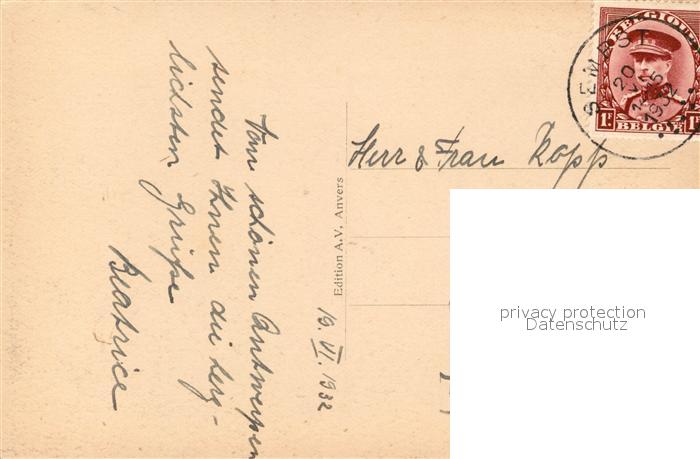 Vom schönen Antwerpen
sendet Ihnen die herz-
lichsten Grüße
Beatrice
19. VI. 1932
Edition A.V. Anvers
Herr & Frau Kopp
BELGIQUE
1F
1F
BELGIË
20
VI
1932
privacy protection
Datenschutz